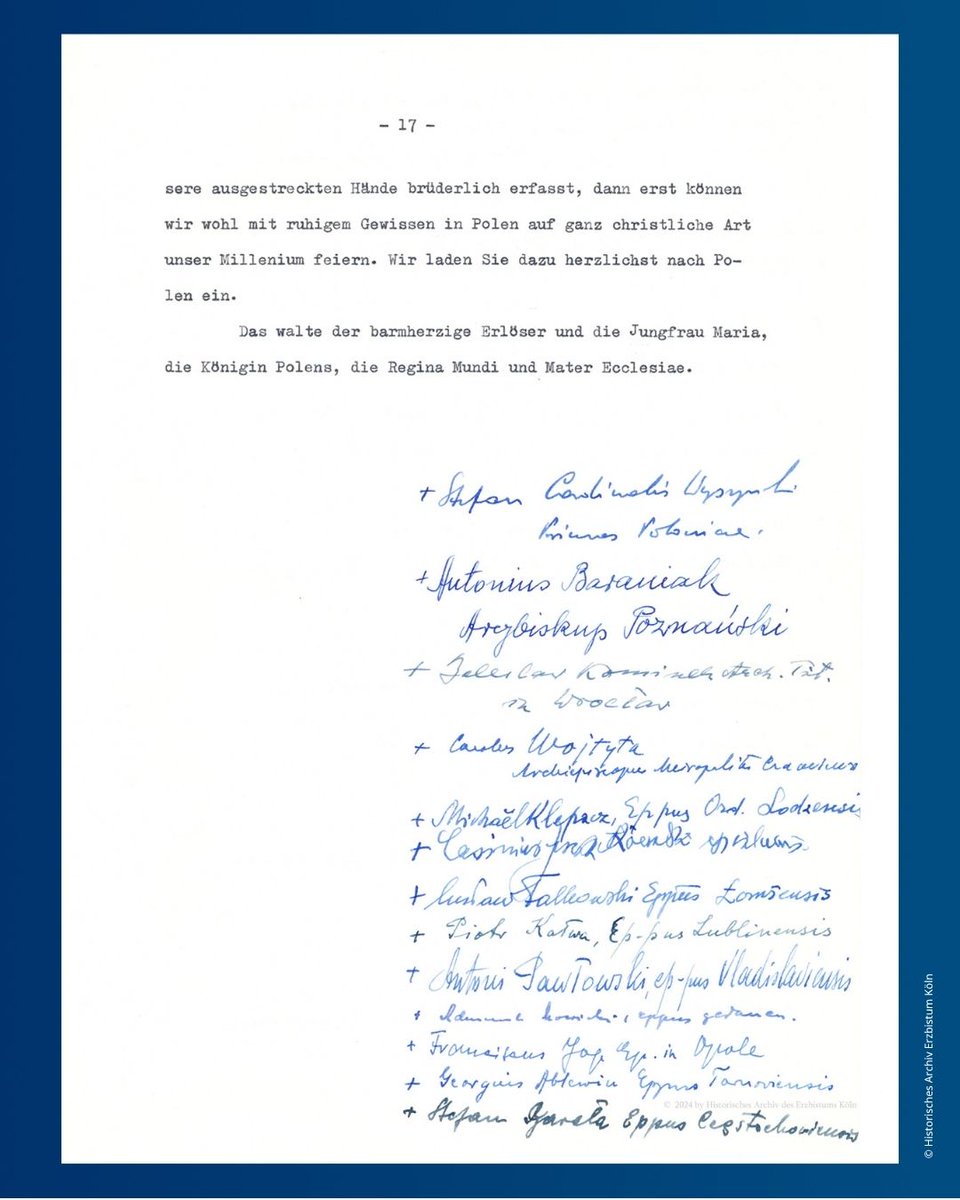 - 17 -
sere ausgestreckten Hände brüderlich erfasst, dann erst können
wir wohl mit ruhigem Gewissen in Polen auf ganz christliche Art
unser Millenium feiern. Wir laden Sie dazu herzlichst nach Po-
len ein.
Das walte der barmherzige Erlöser und die Jungfrau Maria,
die Königin Polens, die Regina Mundi und Mater Ecclesiae.
+ Stefan Cardinalis Wyszyński
Primas Poloniae.
+ Antonius Baraniak
Arcybiskup Poznański
+ Boleslaw Kominek Arch. Tit.
in Wrocław
+ Carolus Wojtyła
Archiepiscopus Metropolita Cracoviens
+ Michael Klepacz, Eppus Ord. Lodzensis
+ Casimirus
+ Czesław Falkowski Eppus Łomzensis
+ Piotr Kałwa, Ep-pus Lublinensis
+ Antoni Pawłowski, ep-pus Vladislaviensis
+ Edmund Nowicki, eppus gedanen.
+ Franciscus Jop Ep. in Opole
+ Georgius Ablewicz Eppus Tarnoviensis
© 2024 by Historisches Archiv des Erzbistums Köln
+ Stefan Bareła Eppus Częstochoviensis
© Historisches Archiv Erzbistum Köln